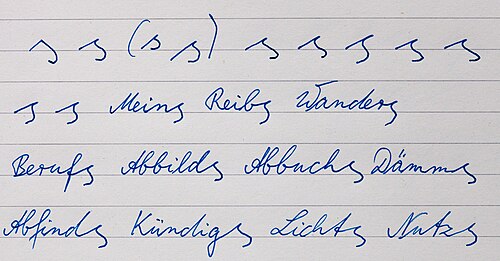 s s (s s) s s s s s
s s Meins Reibs Wanders
Berufs Abbilds Abbuchs Dämms
Abfinds Kündigs Lichts Nutzs